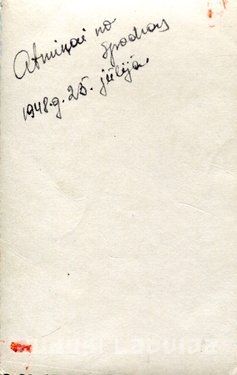 Atmiņai no
Spodras
1948.g. 25. jūlijā.